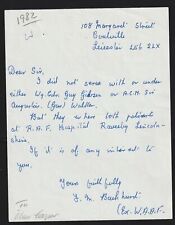 1982
W
108 Margaret Street
Coalville
Leicester LE6 2LX
Dear Sir,
I did not serve with or under
either Wg. Cdr. Guy Gibson or A.C.M. Sir
Augustus (Gus) Walker.
But they were both patients
at R.A.F. Hospital Rauceby Lincoln-
shire.
If it is of any interest to
you.
Yours faithfully
(Ex-W.A.A.F.
To